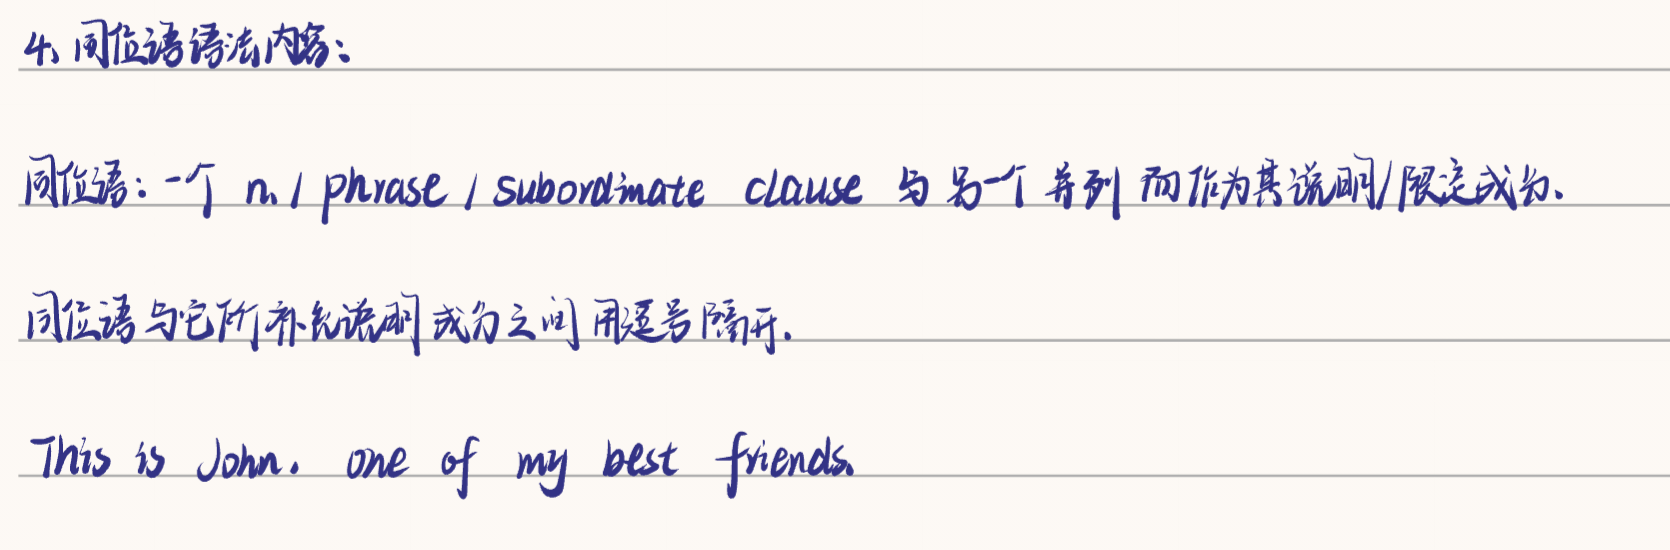 4、同位语语法内容：
同位语：一个 n. / phrase / subordinate clause 与另一个并列而作为其说明/限定成分.
同位语与它所补充说明成分之间用逗号隔开.
This is John, one of my best friends.